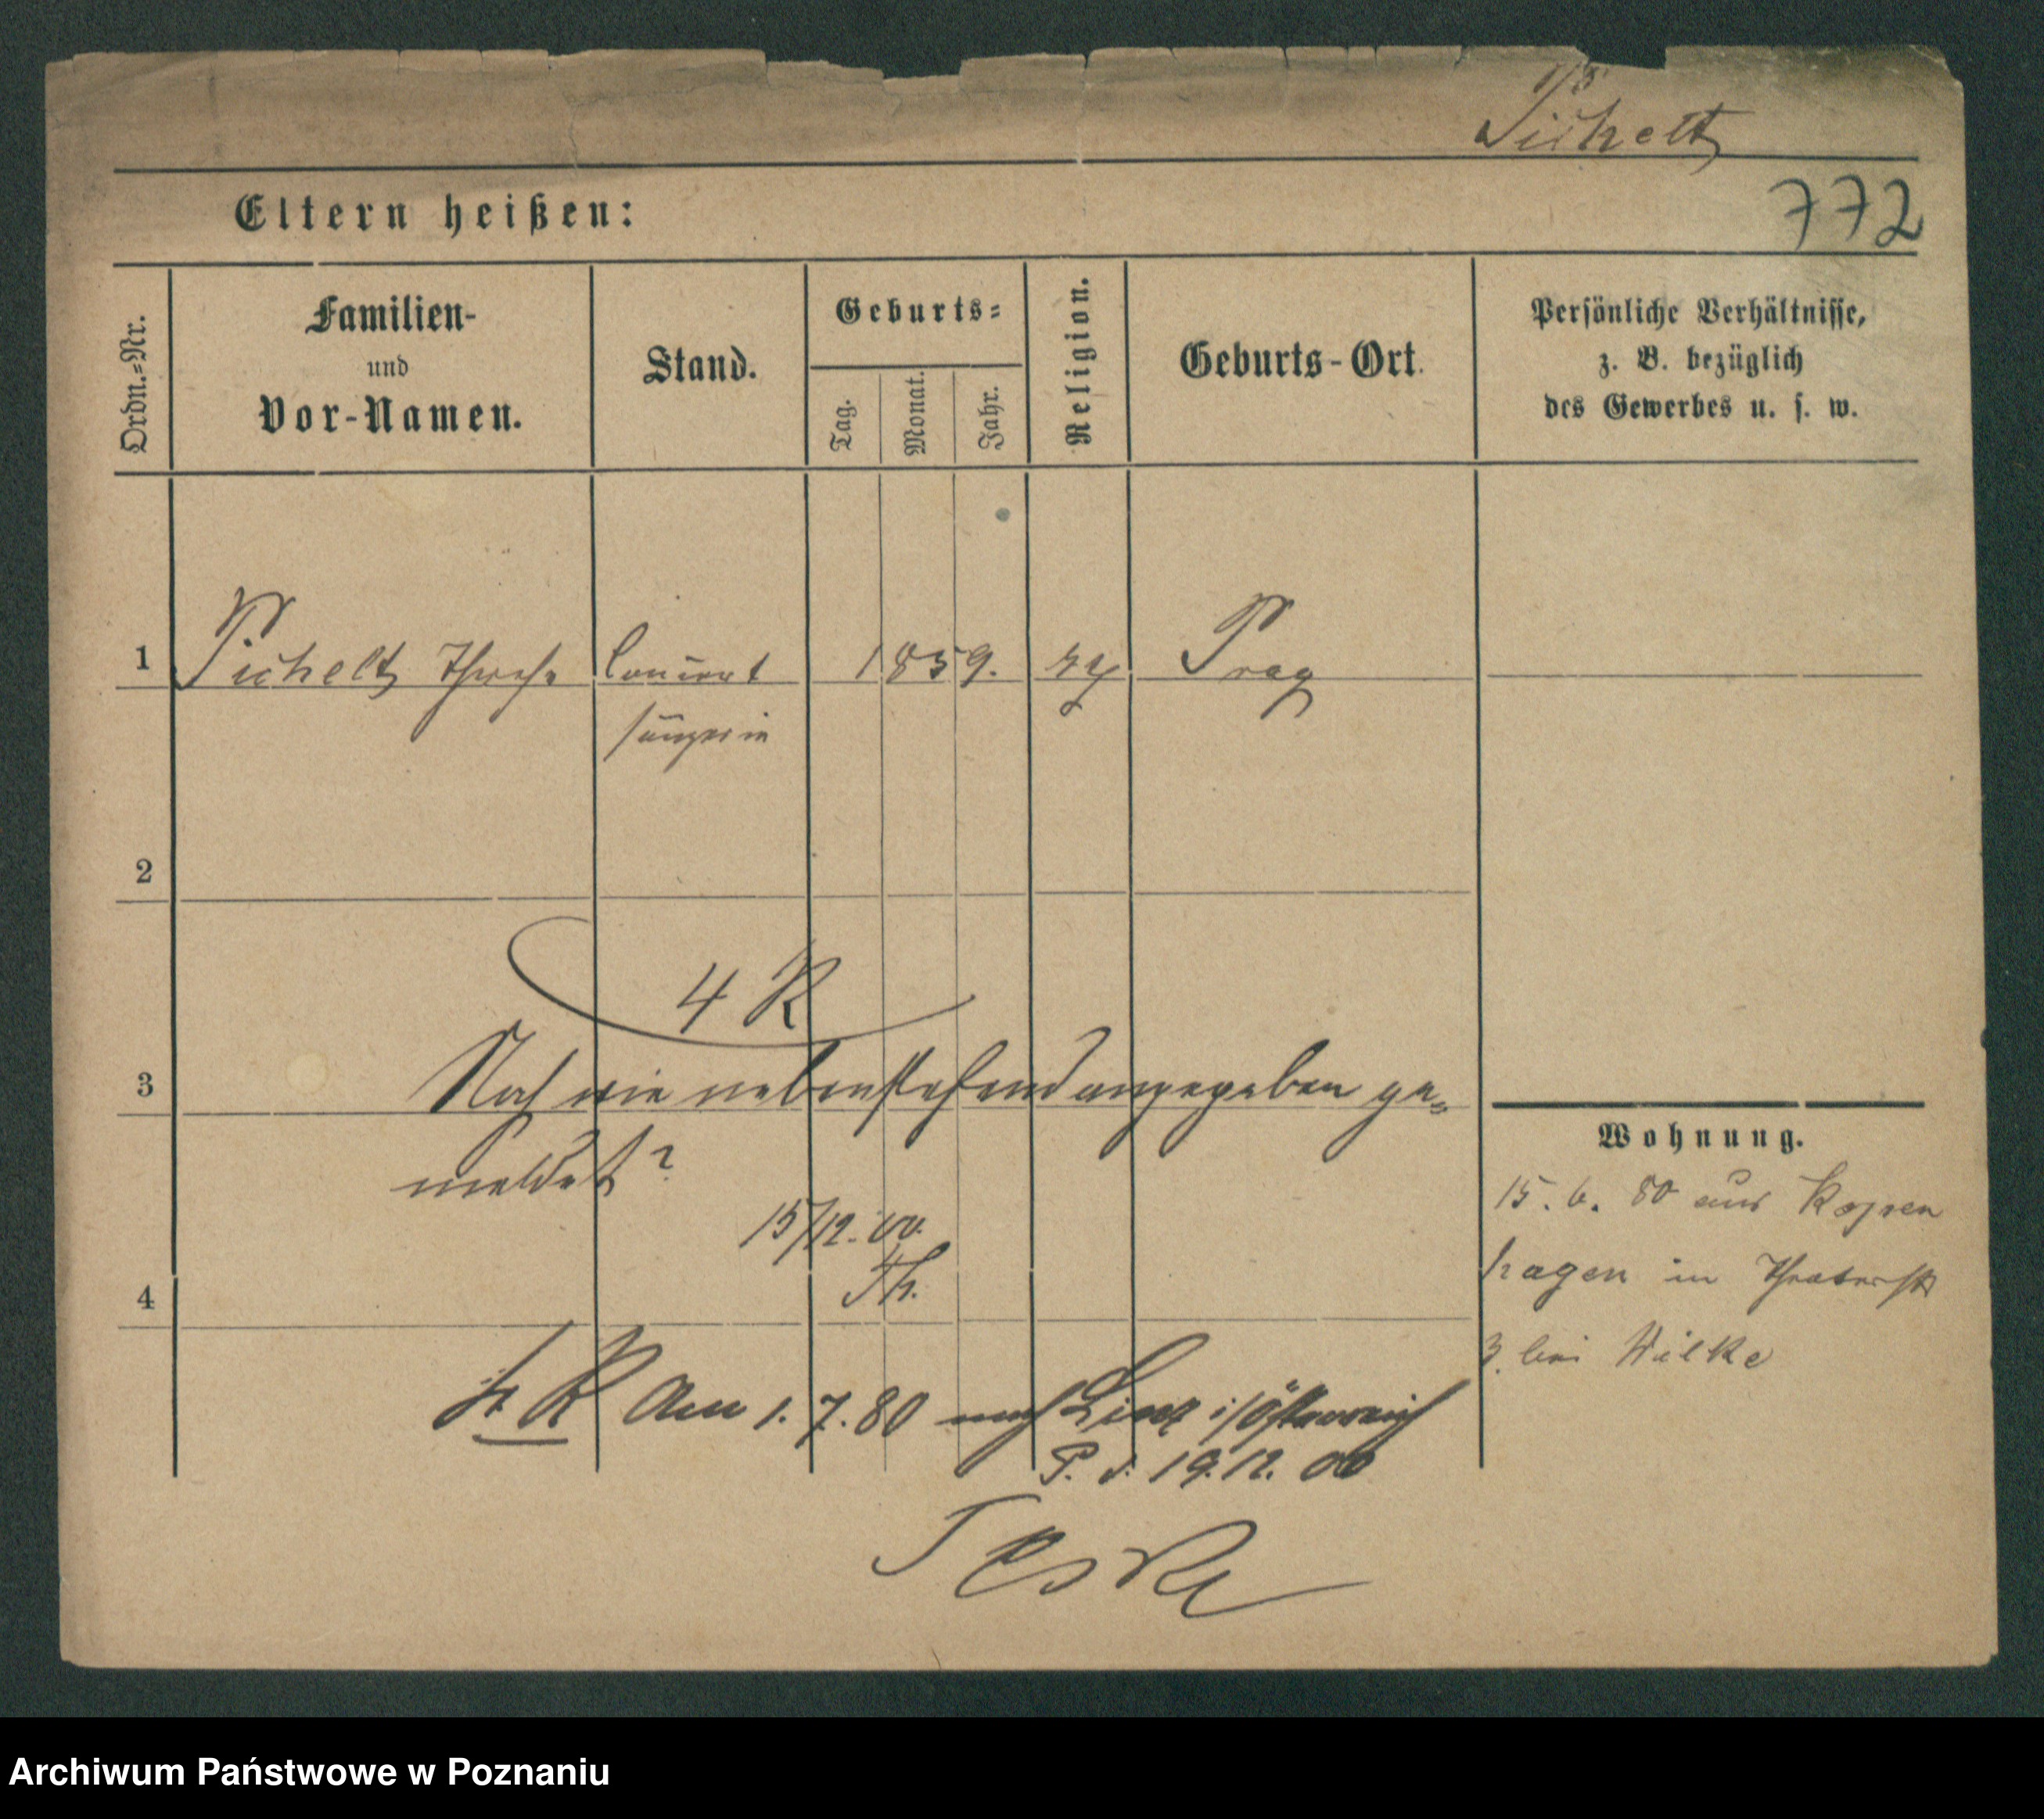 Pichelt
772
Eltern heißen:
Ordn.=Nr.
Familien-
und
Vor-Namen.
Stand.
Geburts=
Tag.
Monat.
Jahr.
Religion.
Geburts-Ort.
Persönliche Verhältnisse,
z. B. bezüglich
des Gewerbes u. s. w.
1 Pichelt Therese Concert 1859. Prag
sängerin
2
4 R
3 Noch wie nebenstehend angegeben ge=
meldet?
15/12. 00.
Th.
4
Wohnung.
15. 6. 80 aus Kopen
hagen in Theaterstr
3. bei Wilke
R Am 1. 7. 80 nach Linz i/Österreich
P. d. 19.12. 00
Teske
Archiwum Państwowe w Poznaniu